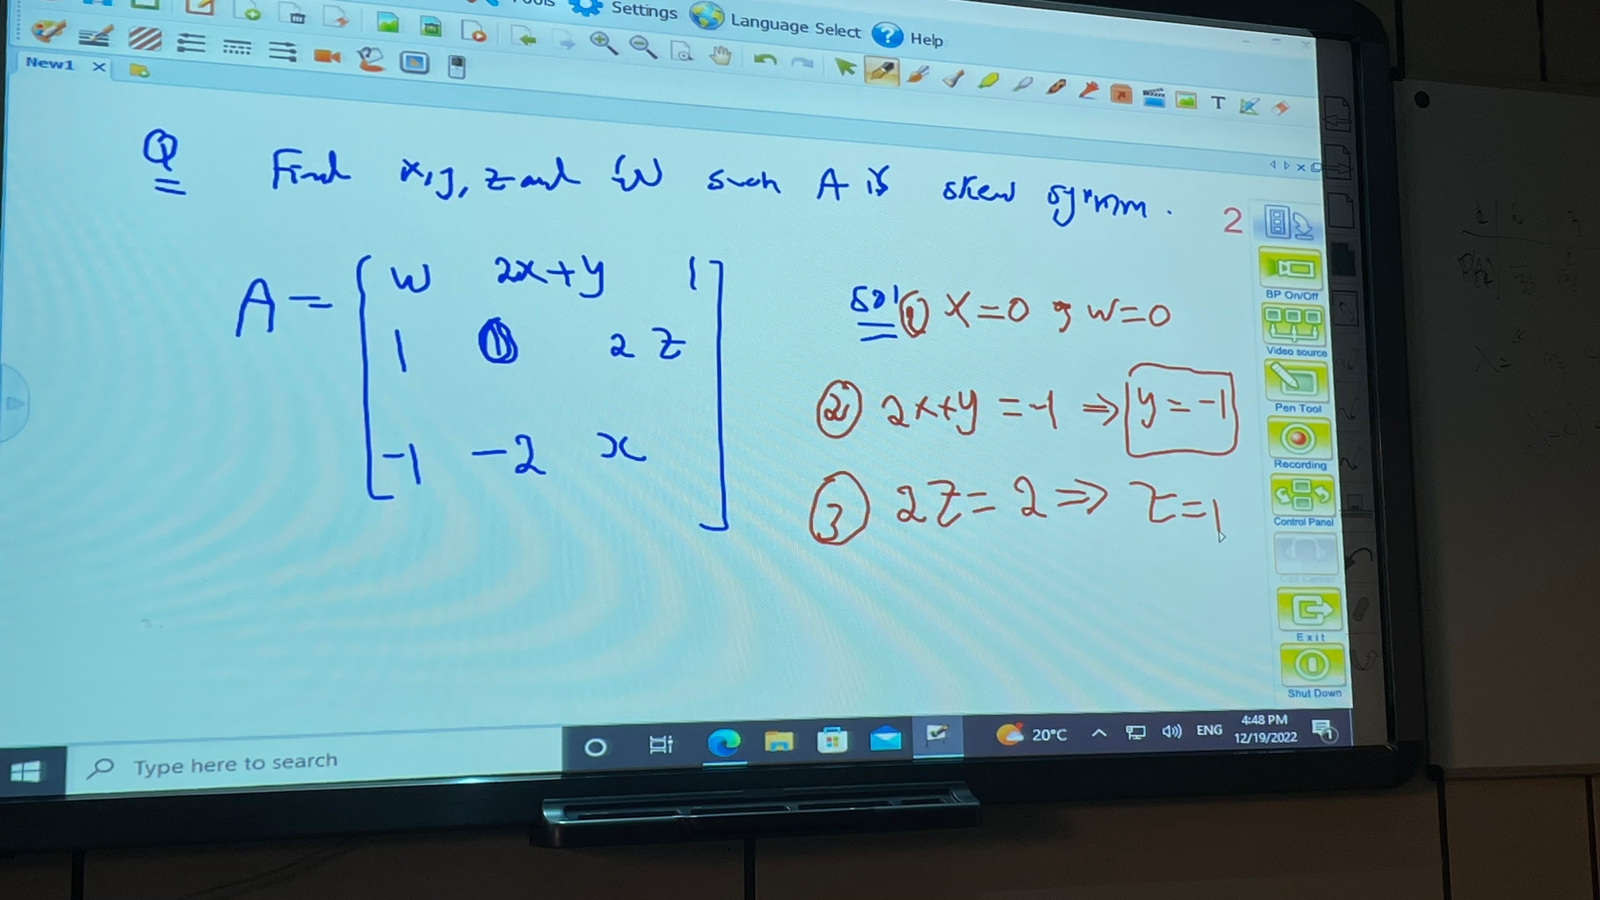 Settings
Language Select
Help
New1 ×
Q Find x,y, z and W such A is skew symm.
2
A = [ W 2x+y 1
1 0 2 z
-1 -2 x ]
sol ① X=0 , W=0
② 2x+y = -1 ⇒ y = -1
③ 2Z = 2 ⇒ Z=1
BP On/Off
Video source
Pen Tool
Recording
Control Panel
Exit
Shut Down
Type here to search
20°C
ENG
4:48 PM
12/19/2022
1